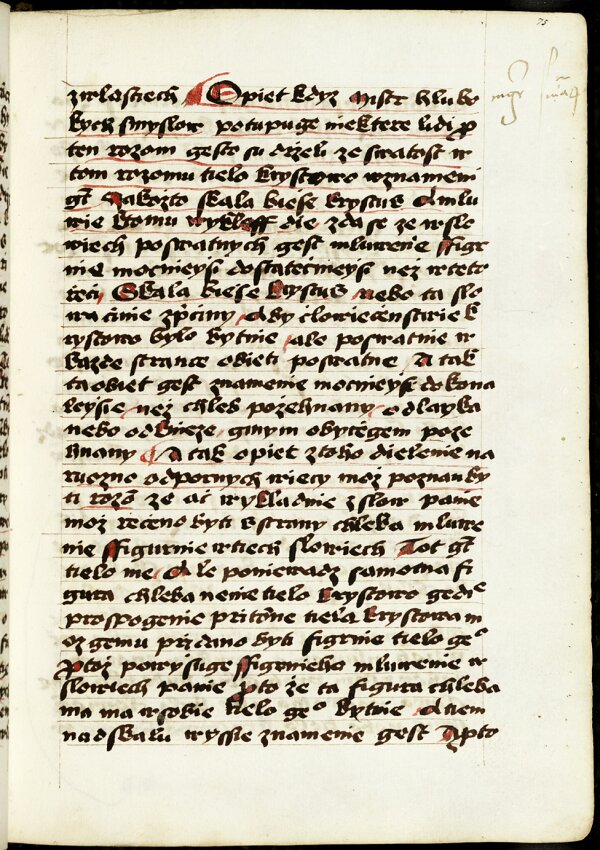 75
zwlasciech Opiet kdyz mistr hlubo
kych smyslow potupuge niektere lidi ꝓ
ten rozom gesto su drzeli ze swatost w
tom rozomu tielo krystowo wznameni
gt Iakozto skala biese krystus A mlu
wie ktomu wykleff die zda se ze wslo
wiech poswatnych gest mluwenie ffigr
nie mocnieysi dostatecnieysi nez wteto
rzeci Skala biese krystus nebo ta slo
wa cinie zpricziny aby clowiecenstwie k
rystowo bylo bytnie ale poswatnie w
kazde strance obieti poswatne A tak
ta obiet gest znamenie mocnieysi dokona
leysie nez chleb pozehnany od layka
nebo od knieze ginym obyczegem poze
hnany A tak opiet ztoho dielenie na
rucze odpornych wiecy moz poznan by
ti rozō ze acz wykladnie zslow panie
moz receno byti wstrany chleba mluwe
nie ffigurnie wtiech slowiech Tot gt
tielo me A le poniewadz samotna fi
gura chleba nenie tielo krystowo gedie
prospogenie pritōne tiela krystowa m
oz gemu pridano byti figrnie tielo geº
ꝓtoz powysuge ffigrnieho mluwenie w
slowiech panie ꝓto ze ta figura chleba
ma wsobie tielo geº bytnie A tiem
nadskalu wyssie znamenie gest A ꝓto